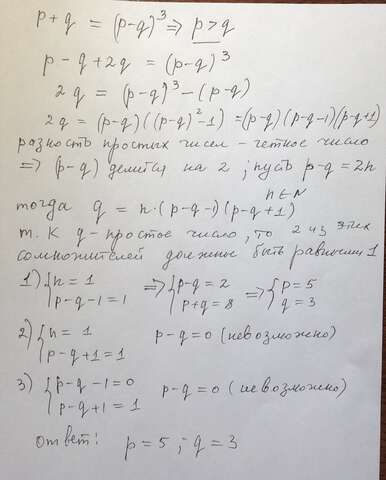 p+q = (p-q)³ ⇒ p>q
p-q+2q = (p-q)³
2q = (p-q)³-(p-q)
2q = (p-q)((p-q)²-1) = (p-q)(p-q-1)(p-q+1)
разность простых чисел - четное число
⇒ (p-q) делится на 2 ; пусть p-q = 2n
n∈N
тогда q = n·(p-q-1)(p-q+1)
т.к q- простое число, то 2 из этих
сомножителей должны быть равными 1
1) {n = 1 ⇒ {p-q = 2 ⇒ {p = 5
{p-q-1 = 1 {p+q = 8 {q = 3
2) {n = 1 p-q=0 (невозможно)
{p-q+1 = 1
3) {p-q-1=0 p-q=0 (невозможно)
{p-q+1 = 1
ответ: p = 5 ; q = 3